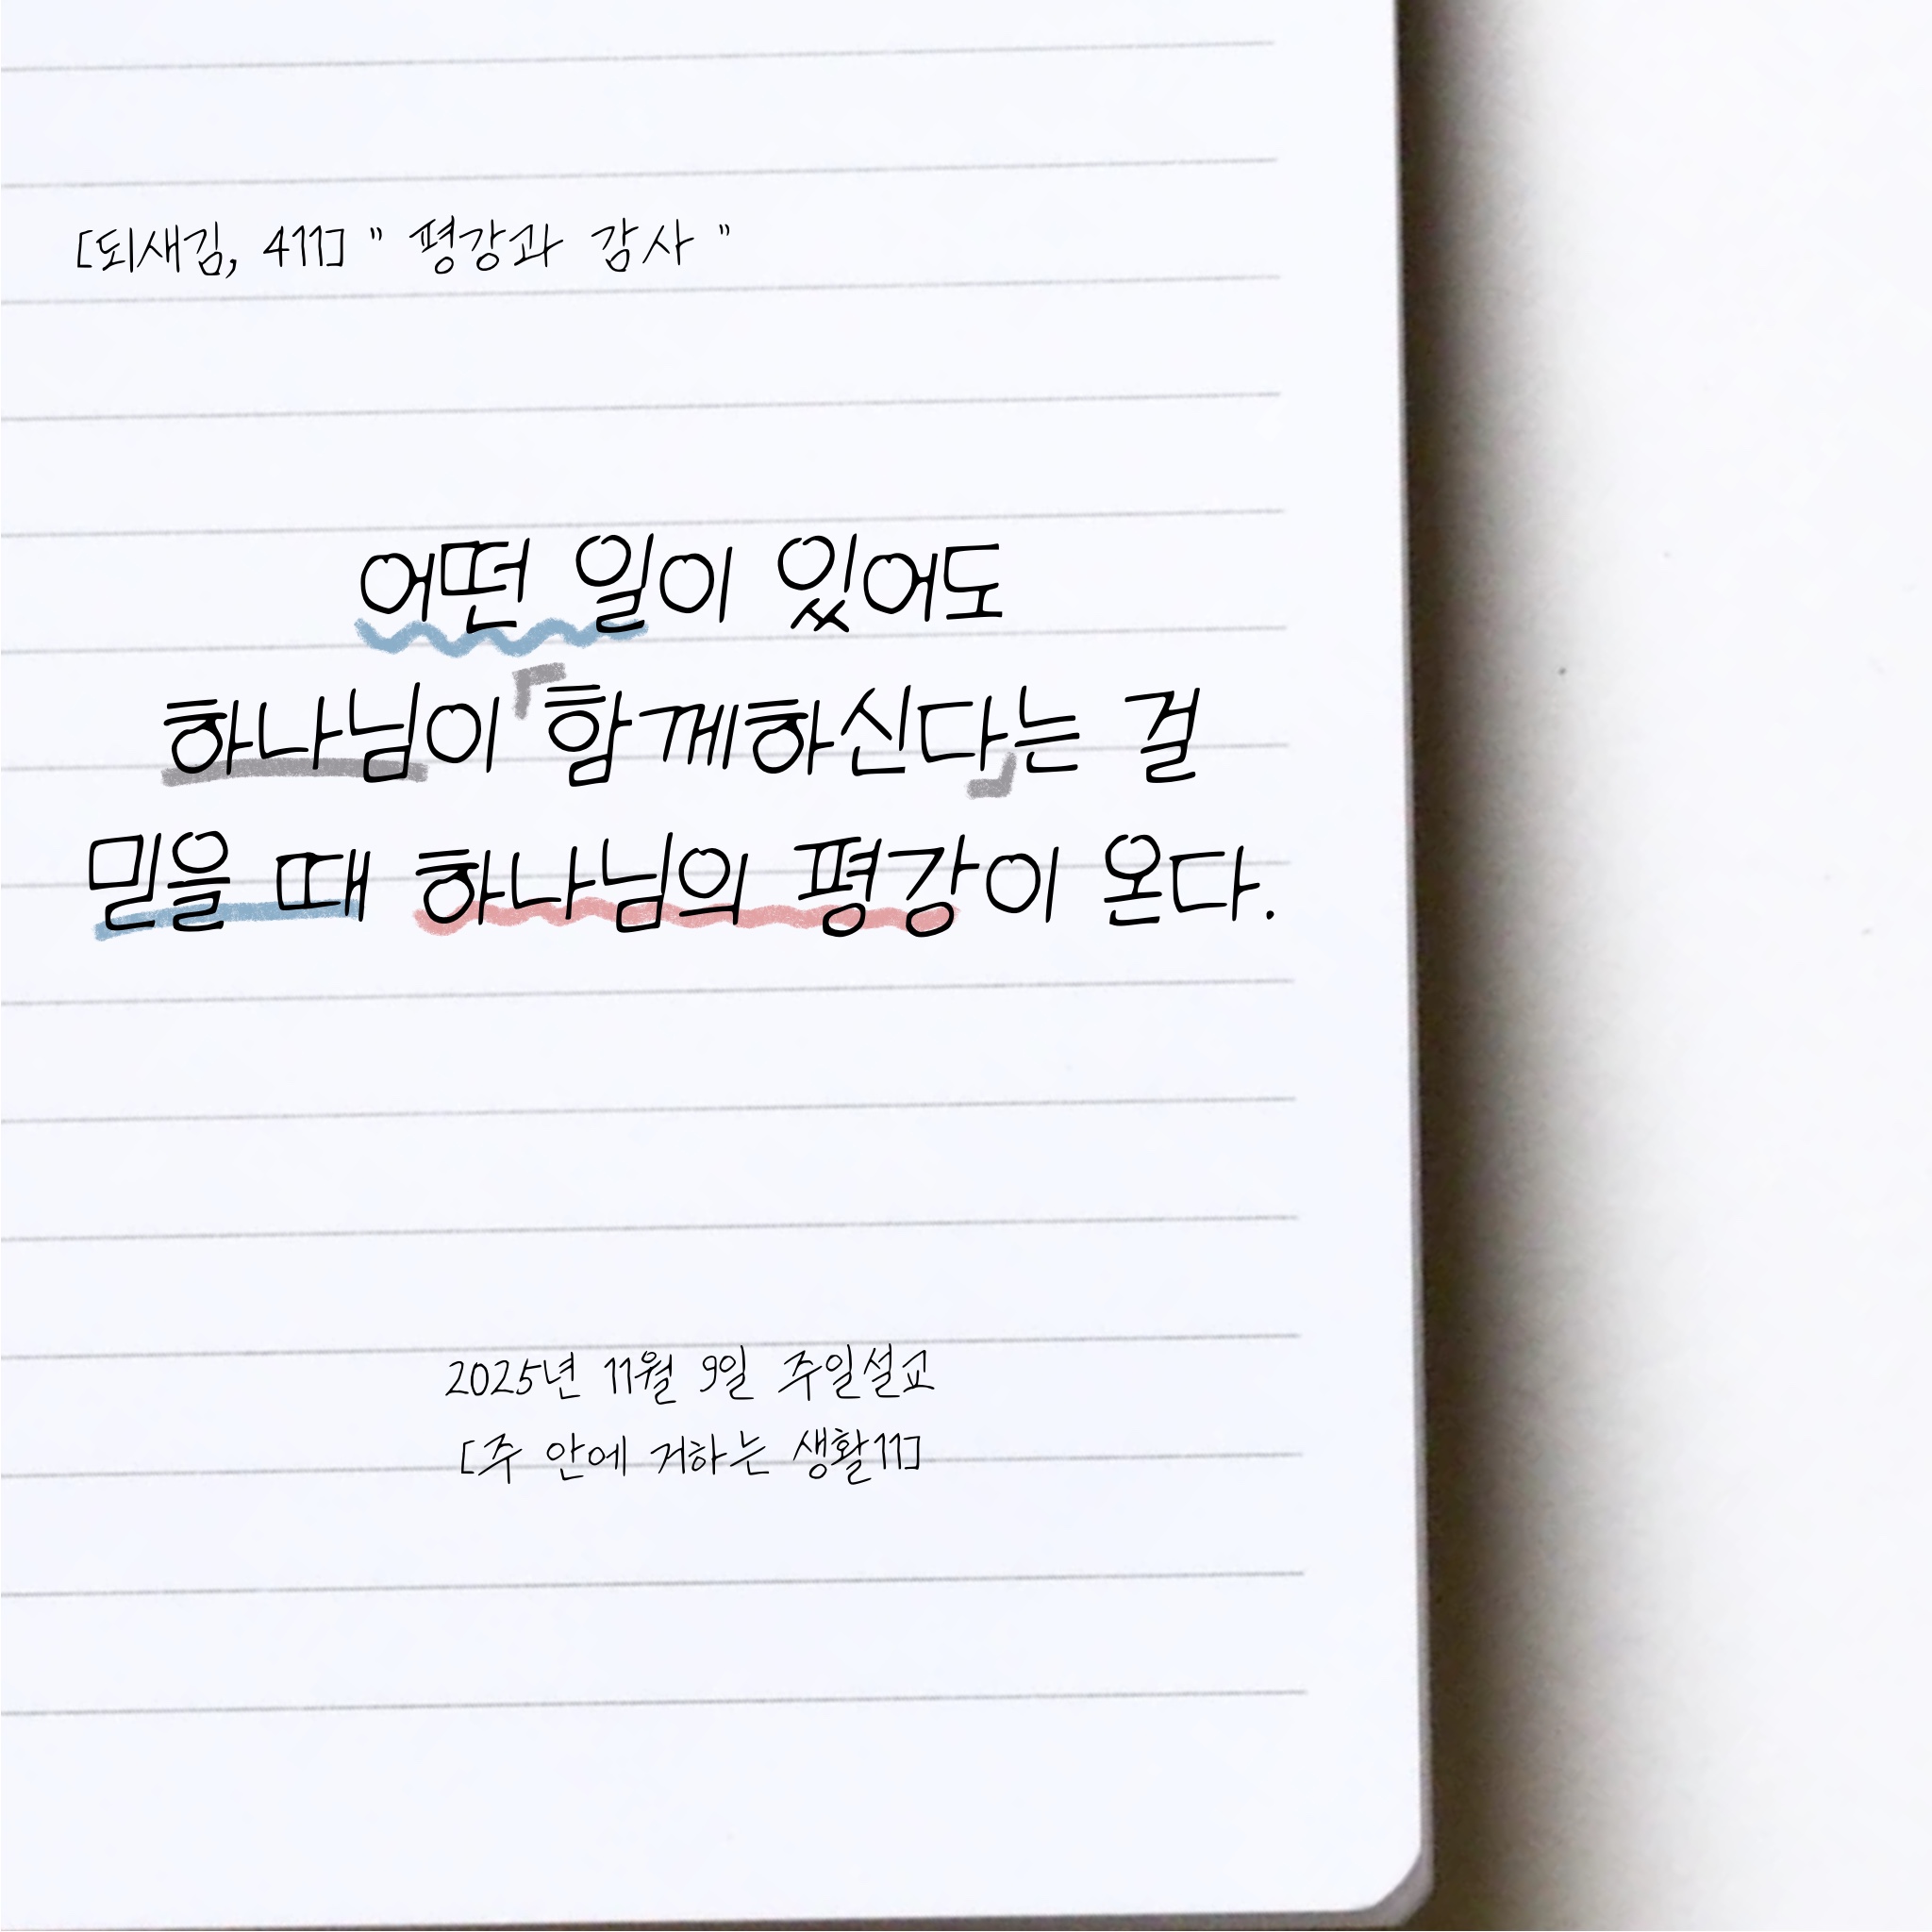 [되새김, 411] " 평강과 감사 "
어떤 일이 있어도
하나님이 「함께하신다」는 걸
믿을 때 하나님의 평강이 온다.
2025년 11월 9일 주일설교
[주 안에 거하는 생활11]